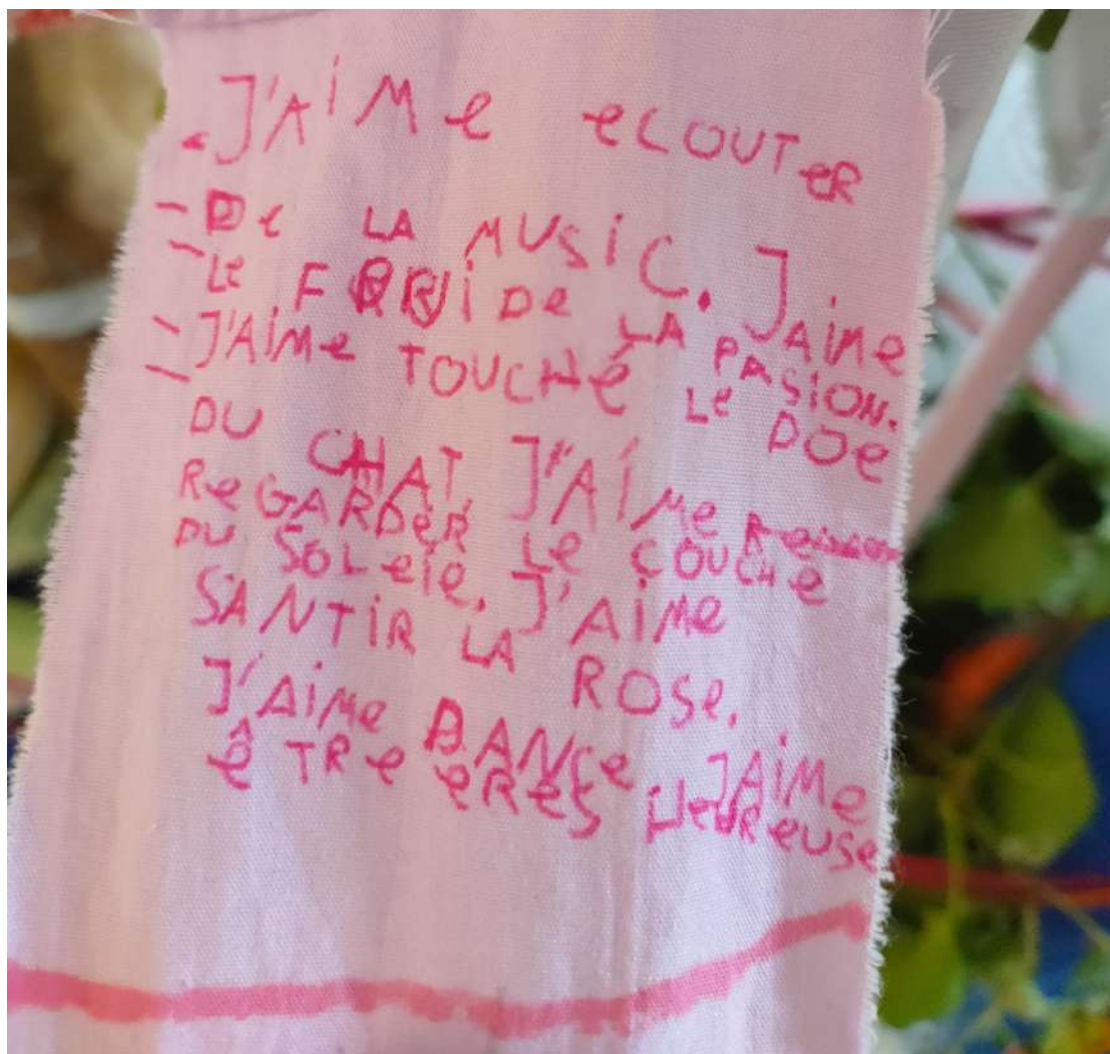 J'AiMe eCOUTeR
De LA MUSiC. JAiMe
Le FRUi De LA PASiON.
J'AiMe TOUCHé Le DOe
DU CHAT, J'AiMe
ReGARDeR Le COUCHe
DU SOLeie. J'AiMe
SANTiR LA ROSe.
J'AiMe DANCe, JAiMe
êTRe HeUReUSe